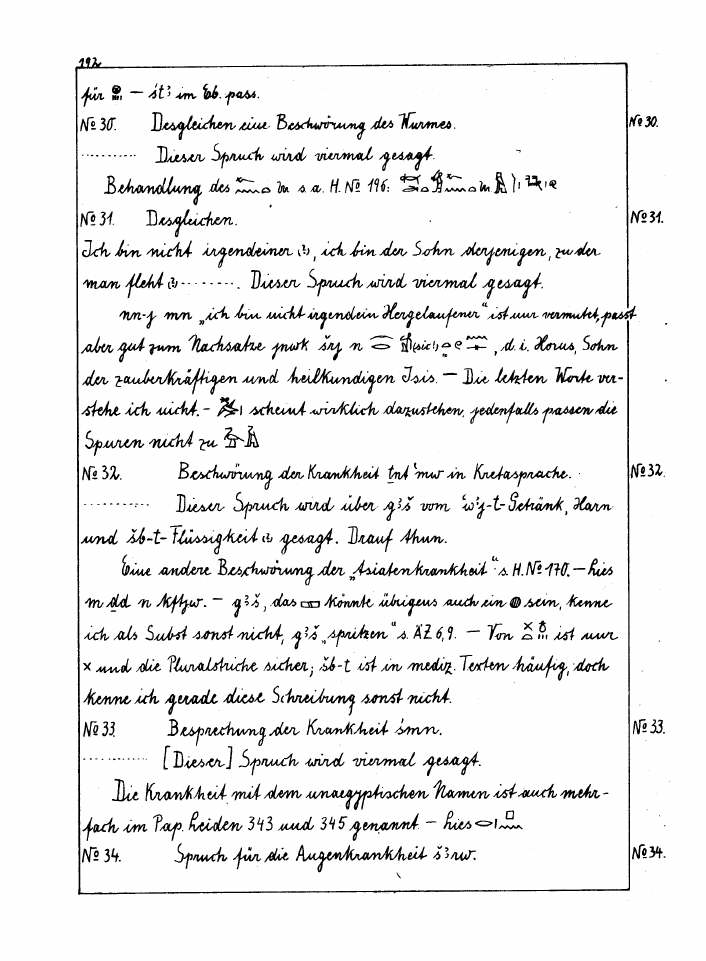 192
für — śtꜣ im Eb. pass.
No 30. Desgleichen eine Beschwörung des Wurmes. No 30.
.......... Dieser Spruch wird viermal gesagt.
Behandlung des s. a. H. No 196:
No 31. Desgleichen. No 31.
Ich bin nicht irgendeiner (?), ich bin der Sohn derjenigen, zu der
man fleht (?)......... Dieser Spruch wird viermal gesagt.
nn-j mn „ich bin nicht irgendein Hergelaufener“ ist nur vermutet, passt
aber gut zum Nachsatze jnwk šrj n (sic!), d. i. Horus, Sohn
der zauberkräftigen und heilkundigen Isis. — Die letzten Worte ver-
stehe ich nicht. - scheint wirklich dazustehen, jedenfalls passen die
Spuren nicht zu
No 32. Beschwörung der Krankheit ṯnt ꜥmw in Kretasprache. No 32.
.......... Dieser Spruch wird über gꜣš vom ꜥwꜣj-t-Getränk, Harn
und šb-t-Flüssigkeit (?) gesagt. Drauf thun.
Eine andere Beschwörung der „Asiatenkrankheit“ s. H. No 170. — hies
m ḏd n kftjw. — gꜣš, das könnte übrigens auch ein sein, kenne
ich als Subst sonst nicht, gꜣš „spritzen“ s. ÄZ 6, 9. — Von ist nur
× und die Pluralstriche sicher; šb-t ist in mediz. Texten häufig, doch
kenne ich gerade diese Schreibung sonst nicht.
No 33. Besprechung der Krankheit śmn. No 33.
.......... [Dieser] Spruch wird viermal gesagt.
Die Krankheit mit dem unaegyptischen Namen ist auch mehr-
fach im Pap. Leiden 343 und 345 genannt — hies
No 34. Spruch für die Augenkrankheit šꜣrw. No 34.